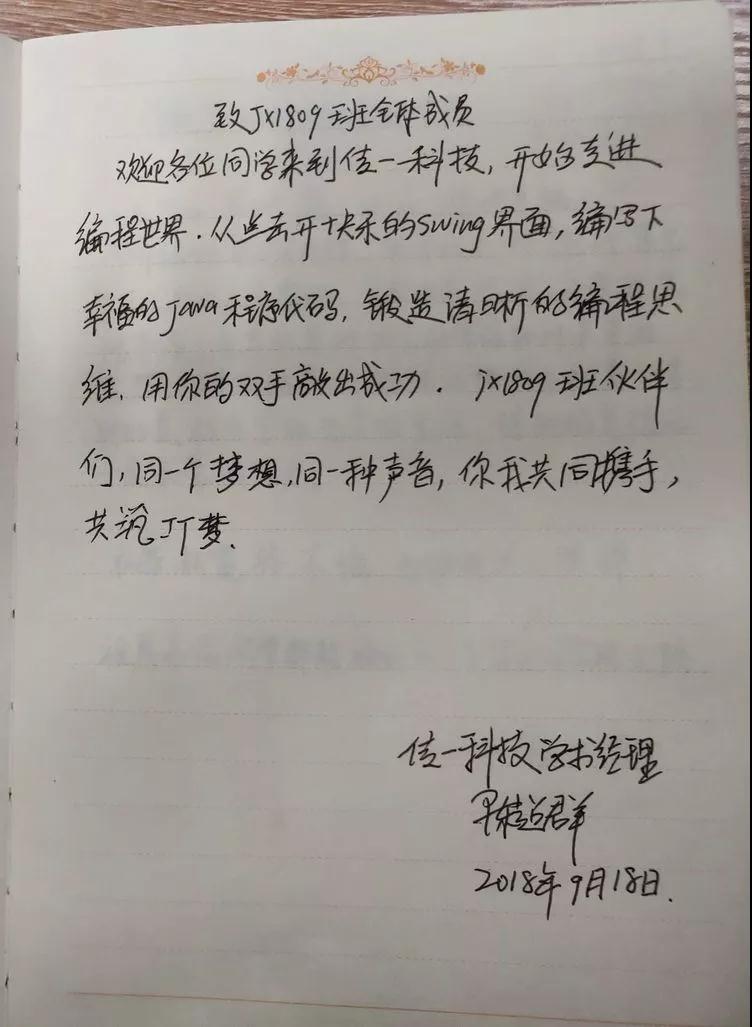 致JX1809班全体成员
欢迎各位同学来到佳一科技，开始走进
编程世界.从点击开快乐的Swing界面,编写下
幸福的java程序代码,锻造清晰的编程思
维,用你的双手敲出成功. jx1809班伙伴
们,同一个梦想,同一种声音,你我共同携手,
共筑IT梦.
佳一科技学术经理
超群
2018年9月18日.